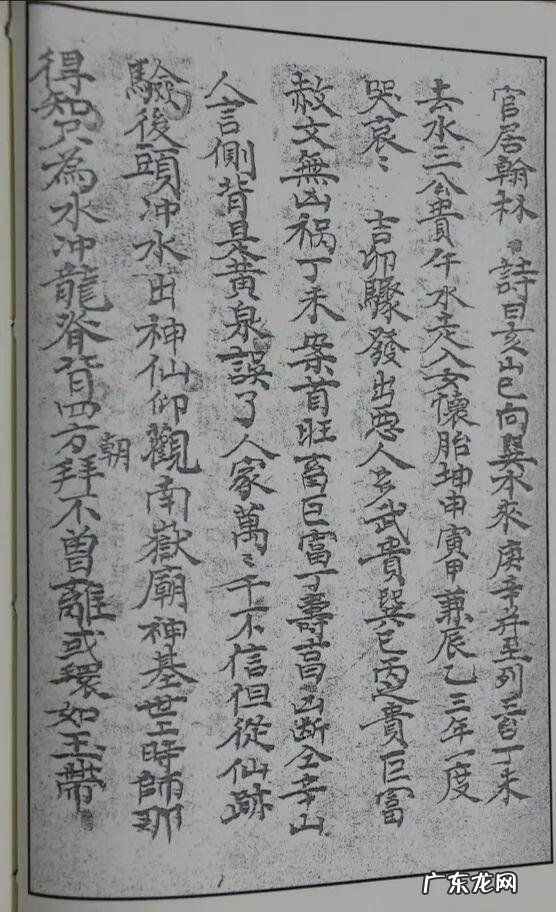 官居翰林 詩曰亥山巳向巽水來庚辛并至列三台丁未
去水三公貴午水走入女懷胎坤申寅甲兼辰乙三年一度
哭哀〻 吉卯驟發出惡人多武貴巽巳丙之貴巨富
赦文無凶禍丁未案首旺畜巨富丁壽高凶斷仝辛山
人言側背是黄泉誤了人家萬〻千不信但從仙跡
驗後頭冲水出神仙仰觀南嶽廟神基世上時師那
得知只為水冲龍脊背四方朝拜不曽離或環如玉帶
广东龙网